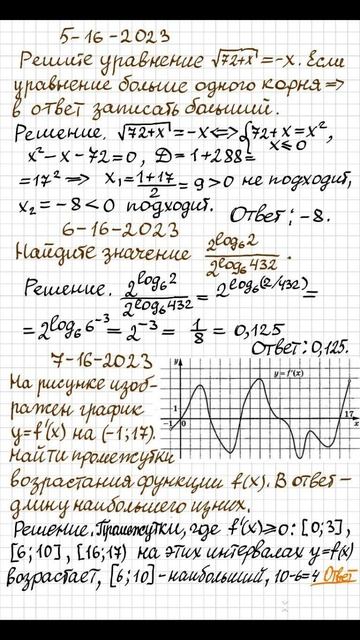 5-16-2023
Решите уравнение √72+x = -x. Если
уравнение больше одного корня ⇒
в ответ записать больший.
Решение. √72+x = -x ⇔ {72+x=x²,
x≤0
x²-x-72=0, D=1+288=
=17² ⇒ x₁=(1+17)/2=9>0 не подходит,
x₂=-8<0 подходит. Ответ: -8.
6-16-2023
Найдите значение 2^log₆2 / 2^log₆432.
Решение. 2^log₆2 / 2^log₆432 = 2^log₆(2/432) =
=2^log₆6⁻³=2⁻³=1/8=0,125
Ответ: 0,125.
7-16-2023
y
y=f'(x)
На рисунке изоб-
ражен график
1
-1 0
17
x
y=f'(x) на (-1;17).
Найти промежутки
возрастания функции f(x). В ответ-
длину наибольшего из них.
Решение. Промежутки, где f'(x)≥0: [0;3],
[6;10], [16;17) на этих интервалах y=f(x)
возрастает, [6;10]-наибольший, 10-6=4 Ответ